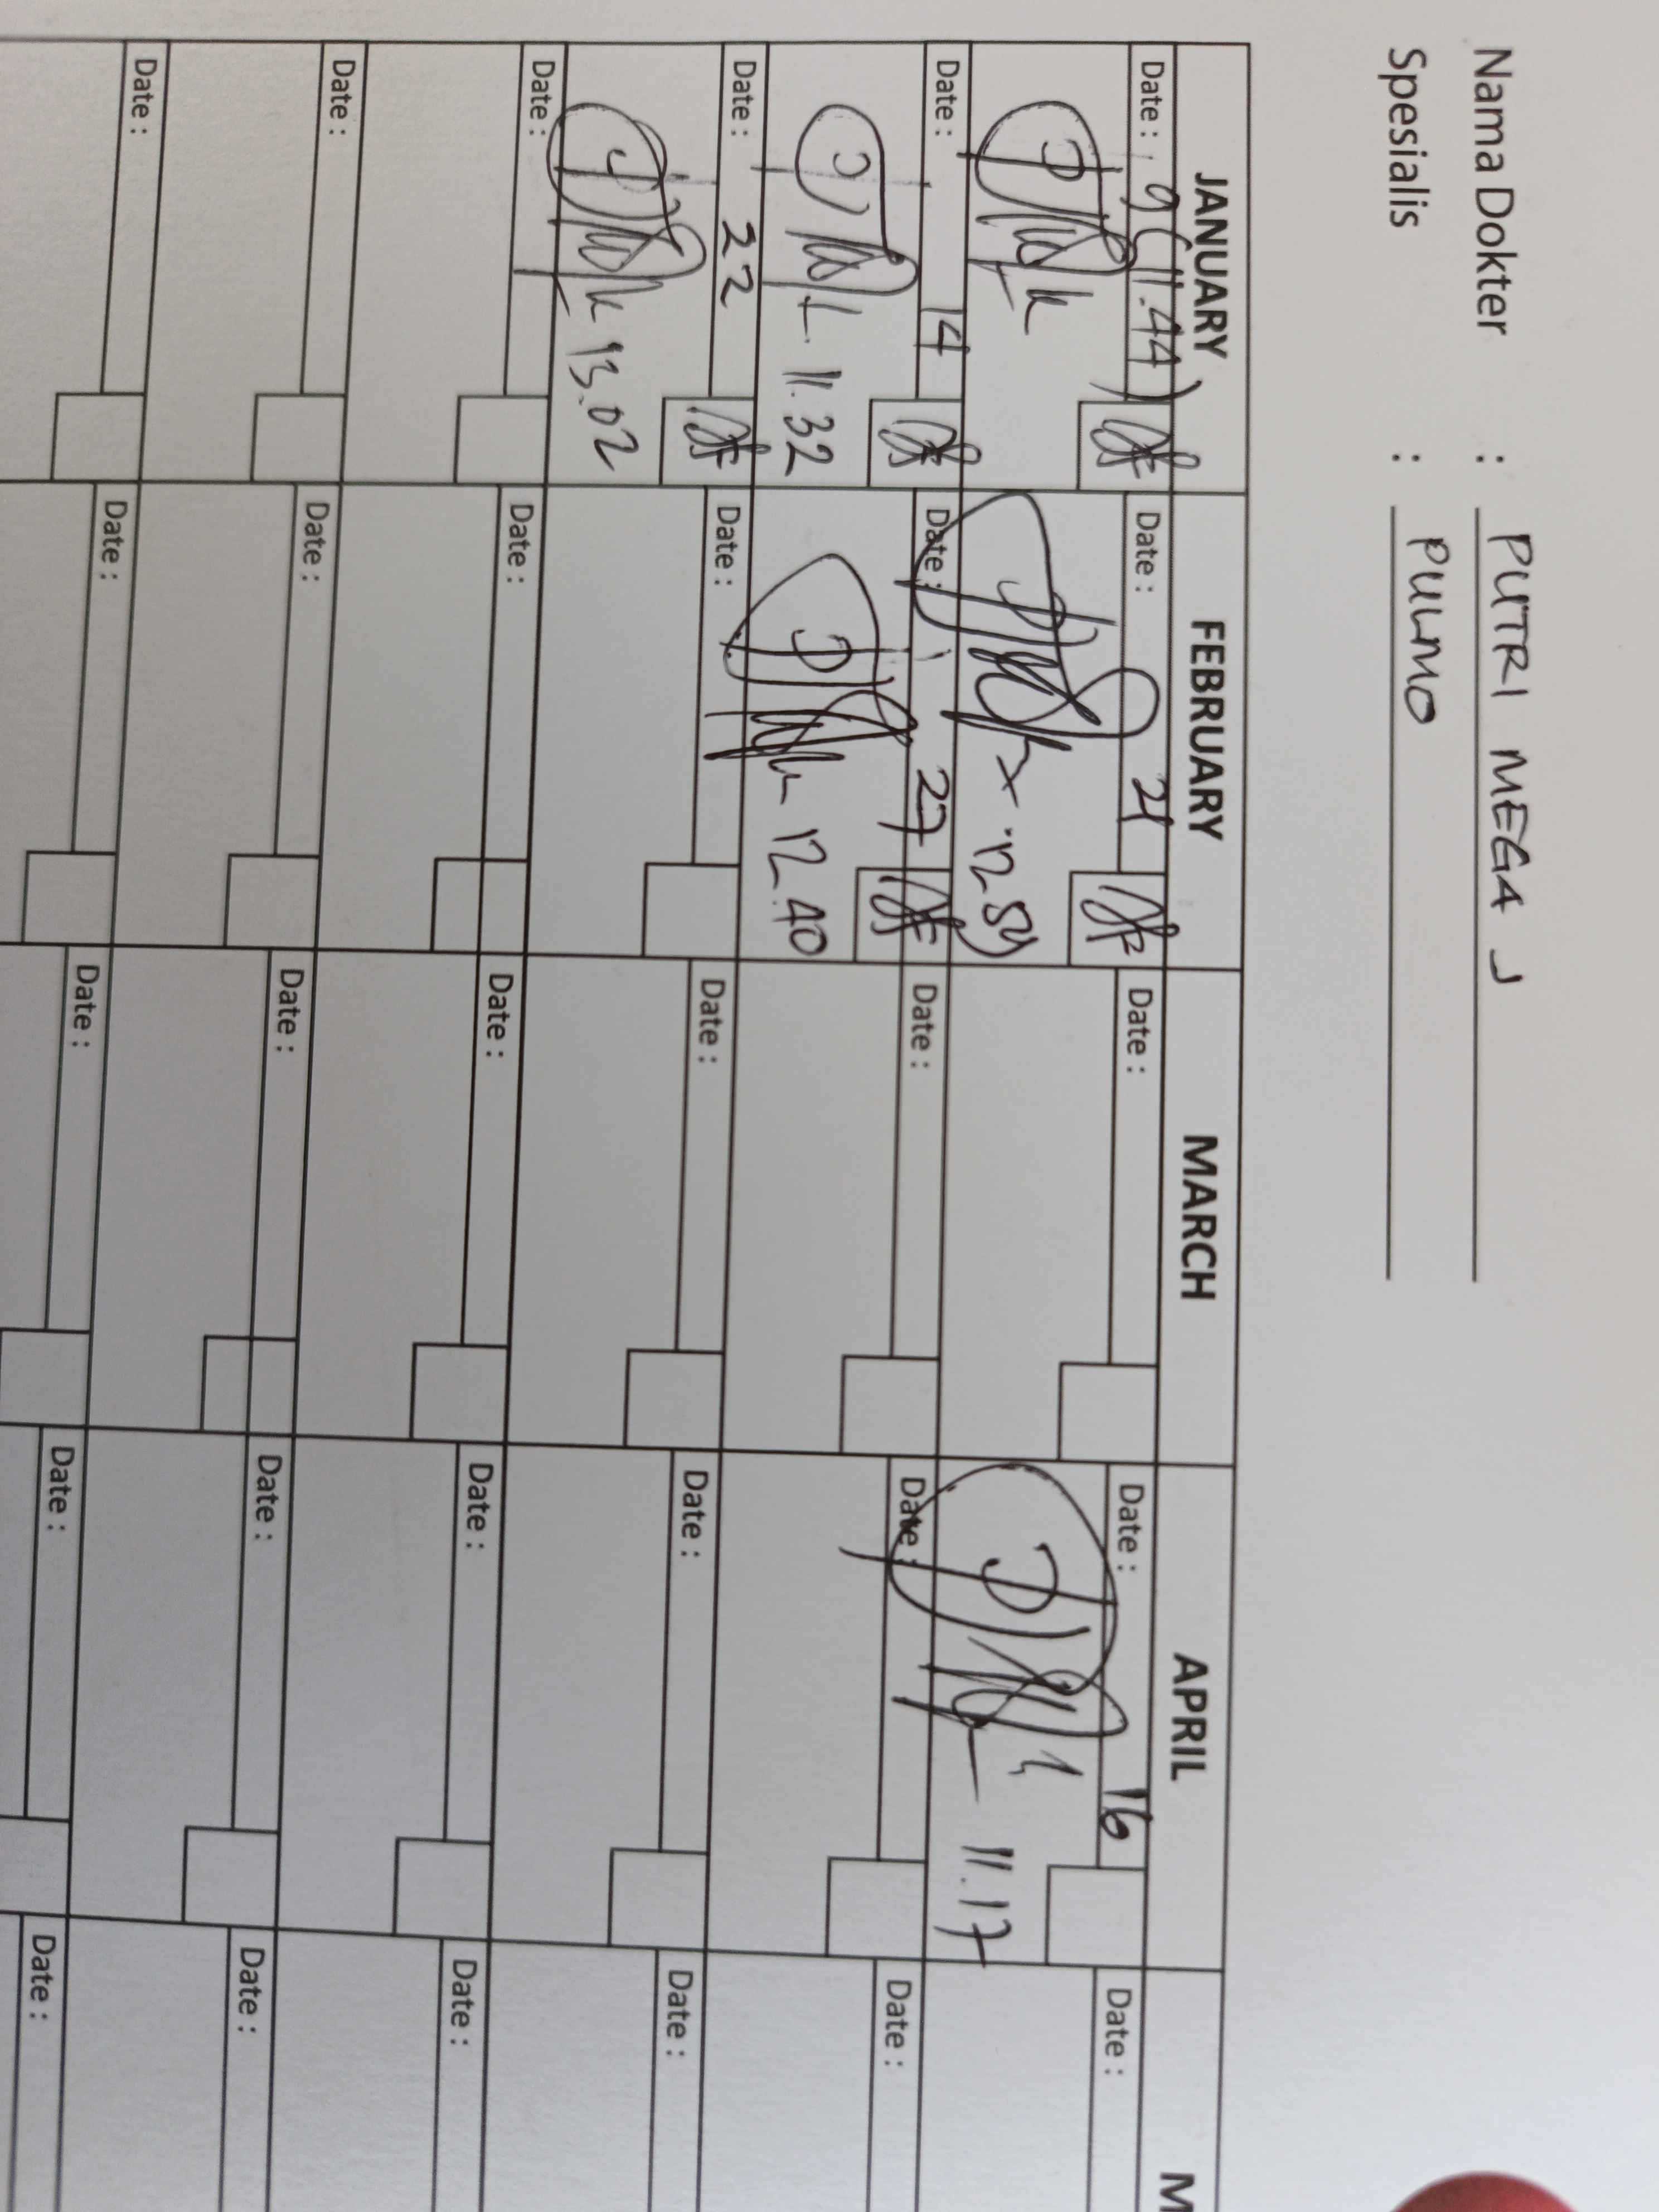 Nama Dokter : PUTRI MEGA J
Spesialis : PULMO
JANUARY FEBRUARY MARCH APRIL M
Date : 9 (11.44) Date : 21 Date : Date : 16 Date :
12.59 11.17
Date : 14 Date : 27 Date : Date : Date :
11.32 12.40
Date : 22 Date : Date : Date : Date :
13.02
Date : Date : Date : Date : Date :
Date : Date : Date : Date : Date :
Date : Date : Date : Date : Date :